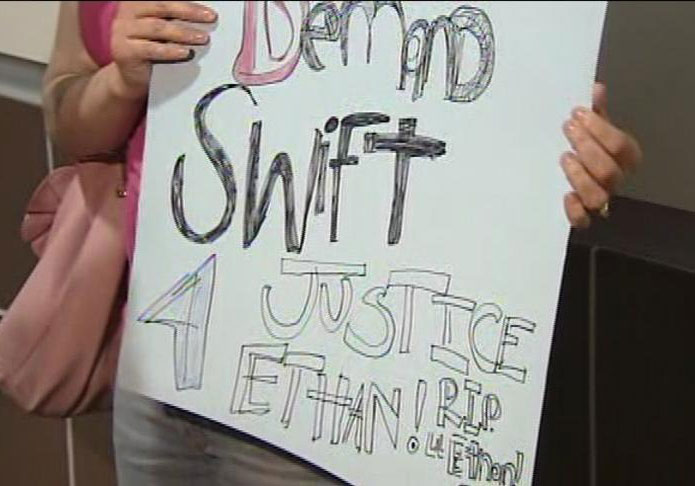 Demand
Swift
4 JUSTICE
ETHAN! R.I.P.
Lil Ethan!